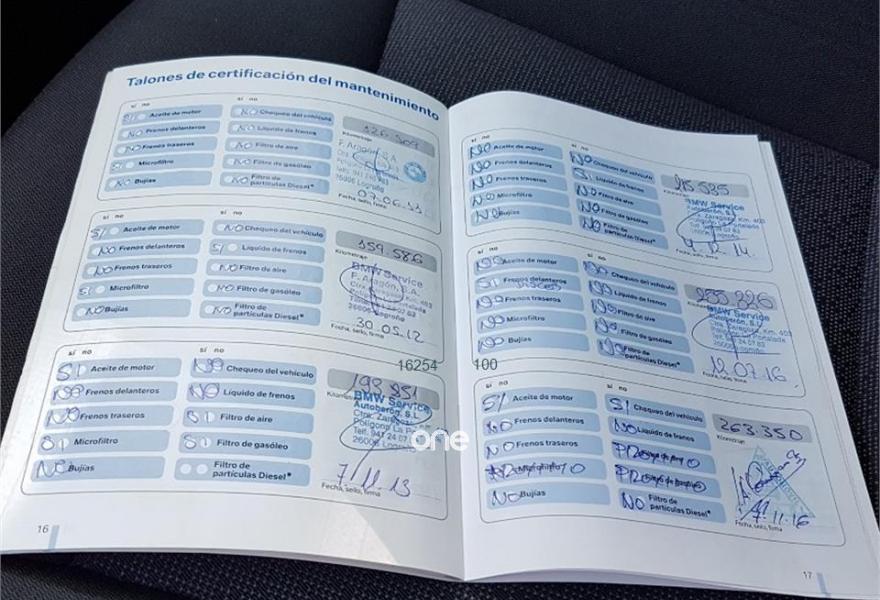 Talones de certificación del mantenimiento
sí no
SI Aceite de motor NO Chequeo del vehículo
NO Frenos delanteros NO Líquido de frenos
NO Frenos traseros NO Filtro de aire
SI Microfiltro NO Filtro de gasóleo
NO Bujías NO Filtro de partículas Diesel*
Kilometraje
F. Aragón, S.A.
26006 Logroño
Fecha, sello, firma
sí no
SI Aceite de motor NO Chequeo del vehículo
NO Frenos delanteros SI Líquido de frenos
NO Frenos traseros NO Filtro de aire
SI Microfiltro NO Filtro de gasóleo
NO Bujías NO Filtro de partículas Diesel*
159.586
Kilometraje
BMW Service
F. Aragón, S.A.
Ctra. Zaragoza, Km. 403
Polígono La Portalada
26006 Logroño
30.05.12
Fecha, sello, firma
sí no
SI Aceite de motor NO Chequeo del vehículo
NO Frenos delanteros NO Líquido de frenos
NO Frenos traseros SI Filtro de aire
SI Microfiltro SI Filtro de gasóleo
NO Bujías Filtro de partículas Diesel*
193.851
Kilometraje
BMW Service
Autoberón, S.L.
Ctra. Zaragoza
Polígono La Po
Tel. 941 24 07
26006 Logroño
7.11.13
Fecha, sello, firma
16
sí no
NO Aceite de motor NO Chequeo del vehículo
NO Frenos delanteros SI Líquido de frenos
NO Frenos traseros NO Filtro de aire
NO Microfiltro NO Filtro de gasóleo
NO Bujías NO Filtro de partículas Diesel*
215.535
Kilometraje
BMW Service
Autoberón, S.L.
Ctra. Zaragoza, Km. 403
Polígono La Portalada
Fecha, sello, firma
sí no
NO Aceite de motor NO Chequeo del vehículo
SI Frenos delanteros NO Líquido de frenos
NO Frenos traseros NO Filtro de aire
NO Microfiltro NO Filtro de gasóleo
NO Bujías NO Filtro de partículas Diesel*
Kilometraje
BMW Service
Autoberón, S.L.
Ctra. Zaragoza, Km. 403
Polígono La Portalada
12.07.16
Fecha, sello, firma
sí no
SI Aceite de motor SI Chequeo del vehículo
NO Frenos delanteros NO Líquido de frenos
NO Frenos traseros
NO Bujías NO Filtro de partículas Diesel*
263.350
Kilometraje
Fecha, sello, firma
17
16254 100
one